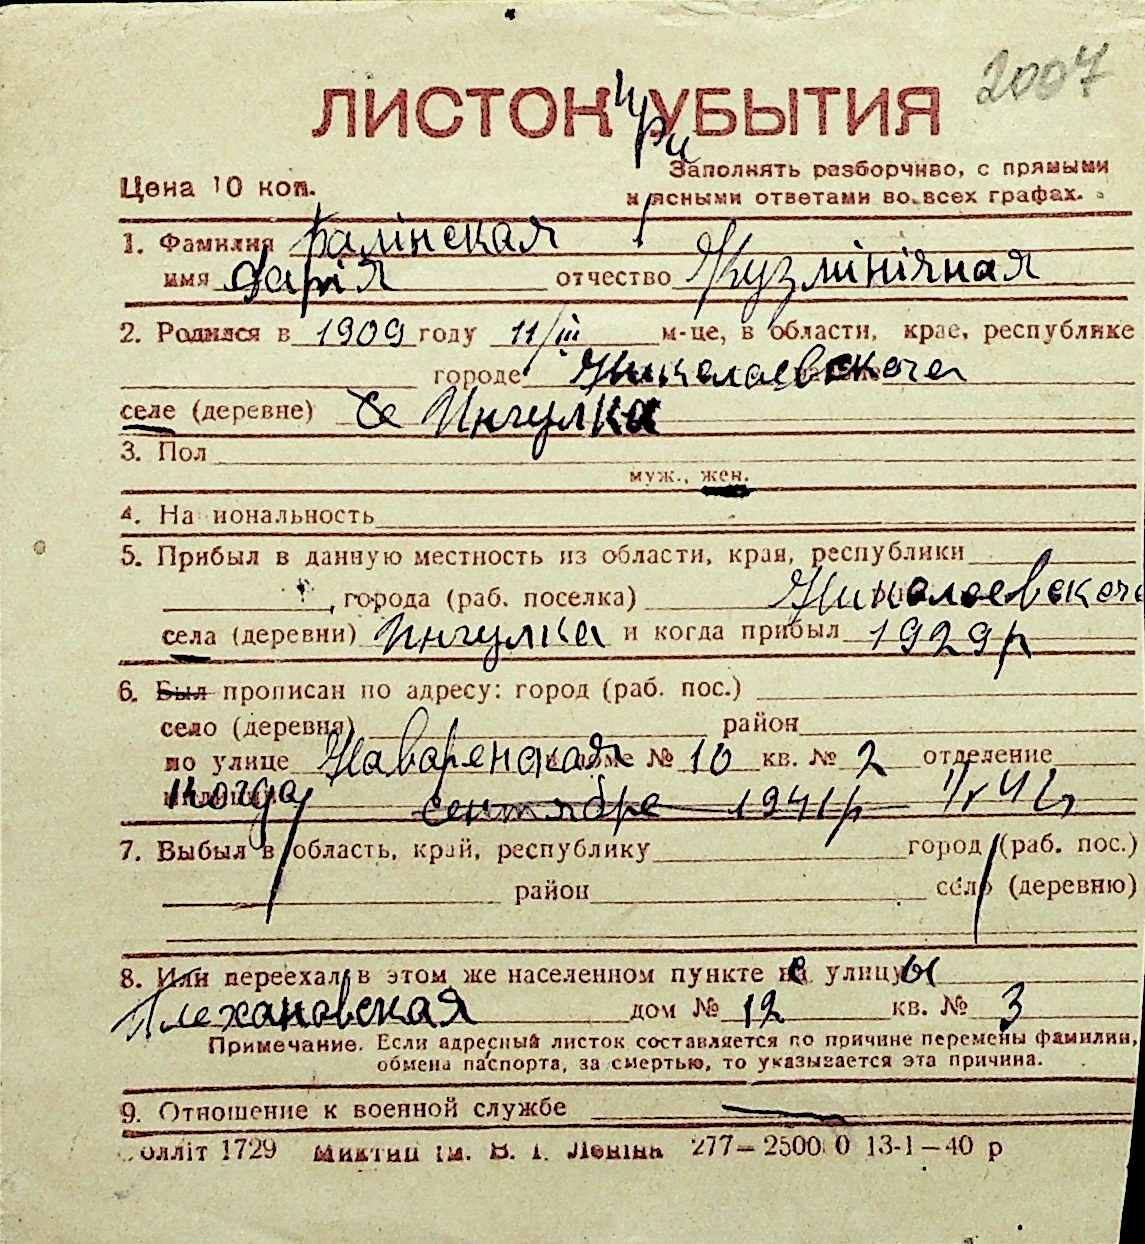 2007
ЛИСТОК УБЫТИЯ
при
Цена 10 коп.
Заполнять разборчиво, с прямыми
и ясными ответами во всех графах.
1. Фамилия Фалінская
имя Дарія отчество Кузмінічная
2. Родился в 1909 году 11/III м-це, в области, крае, республике
городе Николаевскаго
селе (деревне) Се Ингулка
3. Пол
муж., жен.
4. Национальность
5. Прибыл в данную местность из области, края, республики
города (раб. поселка) Николаевскаго
села (деревни) Ингулка и когда прибыл 1929 р
6. Был прописан по адресу: город (раб. пос.)
село (деревня) район
по улице Наваренская доме № 10 кв. № 2 отделение
когда сентябре 1941 р
7. Выбыл в область, край, республику город (раб. пос.)
район село (деревню)
8. Или переехал в этом же населенном пункте на улицы
Плехановская дом № 12 кв. № 3
Примечание. Если адресный листок составляется по причине перемены фамилии,
обмена паспорта, за смертью, то указывается эта причина.
9. Отношение к военной службе
олліт 1729 ім. В. І. Леніна 277—2500 0 13-1—40 р